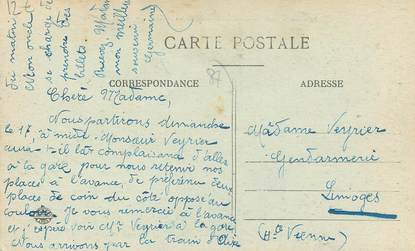 CARTE POSTALE
CORRESPONDANCE
ADRESSE
87
Cheré Madame,
Nous partirons dimanche
le 17 à midi. Monsieur Veyrier
aura-t-il la complaisance d'aller
à la gare pour nous retenir nos
places à l'avance, de préférence deux
places de coin du côté opposé au
couloir. Je vous remercie à l'avance
et j'espère voir Mr Veyrier à la gare
Nous arrivons par le train d'
12
du matin
Mon oncle
se charge de
prendre les
billets.
Recevez Madame
mon meilleur
souvenir
Germaine
Madame Veyrier
Gendarmerie
Limoges
(Hte Vienne)